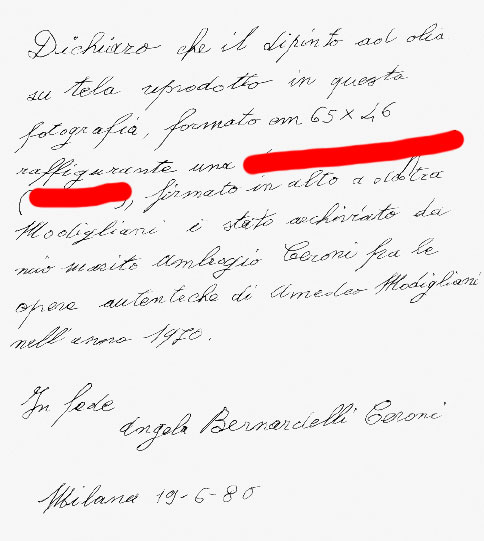 Dichiaro che il dipinto ad olio
su tela riprodotto in questa
fotografia, formato cm 65 x 46
raffigurante una
( ), firmato in alto a destra
Modigliani è stato archiviato da
mio marito Ambrogio Ceroni fra le
opere autentiche di Amedeo Modigliani
nell'anno 1970.
In fede
Angela Bernardelli Ceroni
Milano 19-6-86